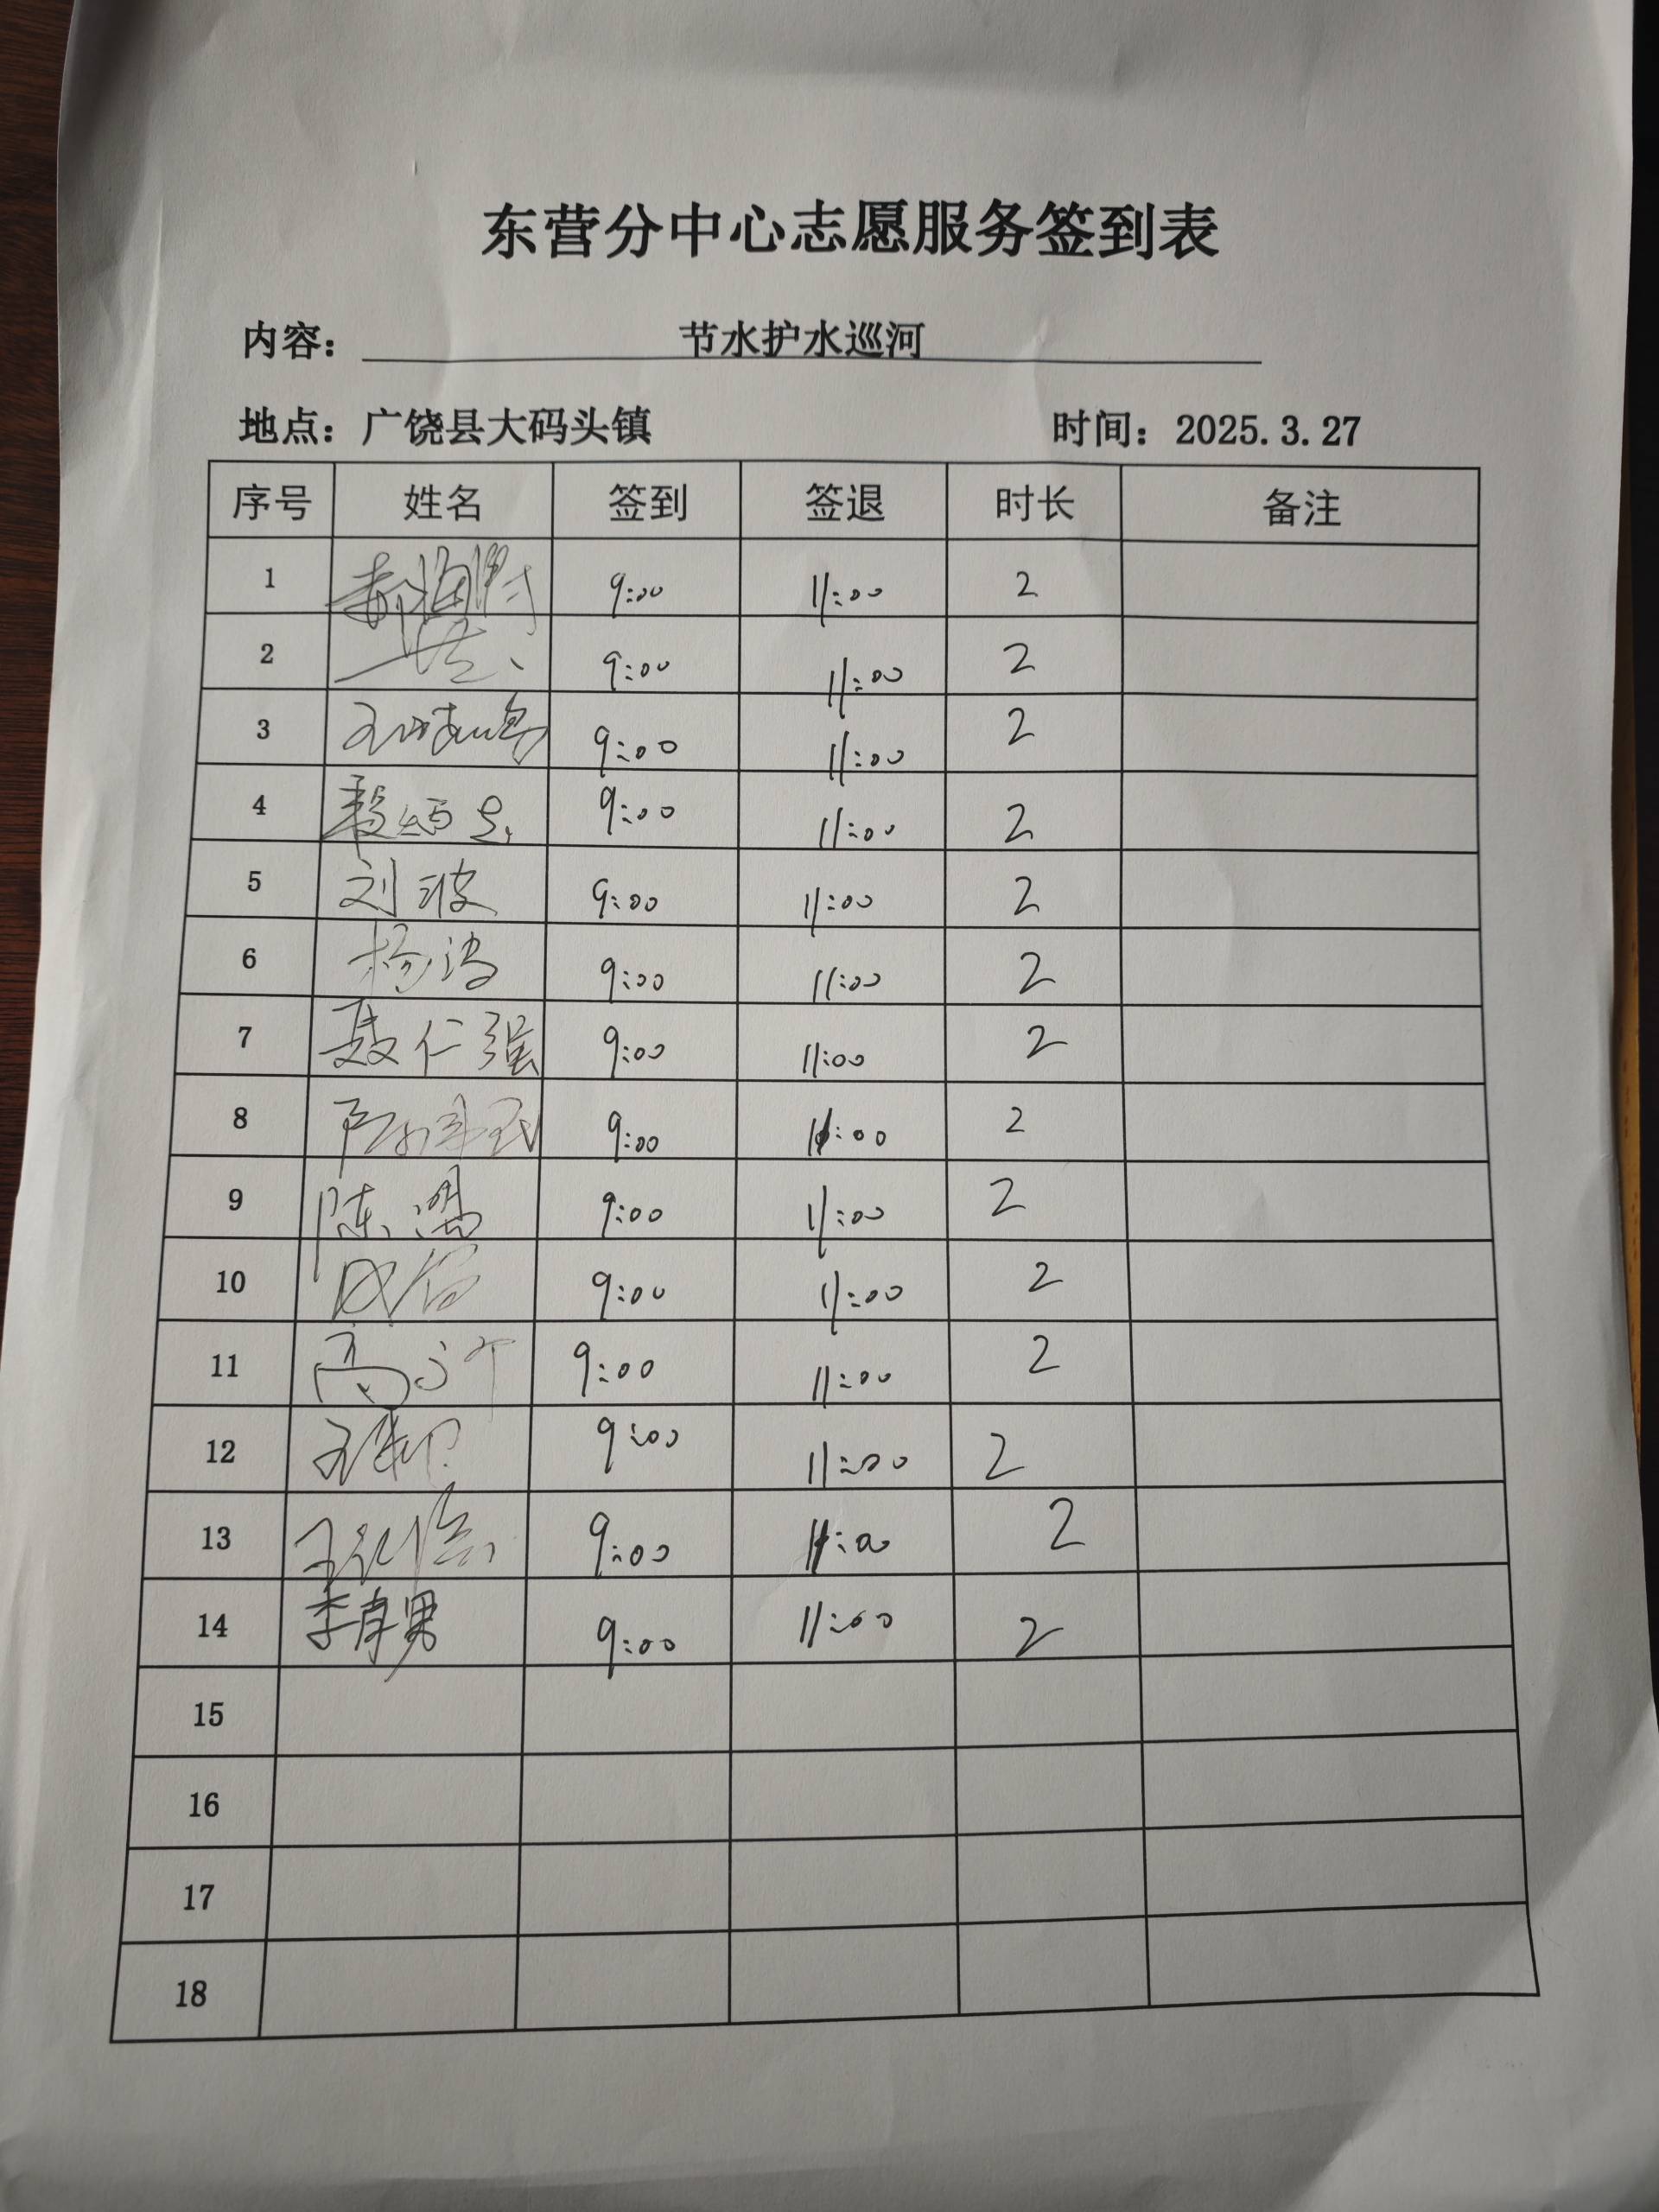 东营分中心志愿服务签到表
内容： 节水护水巡河
地点：广饶县大码头镇 时间：2025.3.27
序号 姓名 签到 签退 时长 备注
1 9:00 11:00 2
2 9:00 11:00 2
3 9:00 11:00 2
4 9:00 11:00 2
5 刘波 9:00 11:00 2
6 杨涛 9:00 11:00 2
7 聂仁强 9:00 11:00 2
8 9:00 11:00 2
9 陈 9:00 11:00 2
10 9:00 11:00 2
11 高 9:00 11:00 2
12 王 9:00 11:00 2
13 王 9:00 11:00 2
14 李 男 9:00 11:00 2
15
16
17
18